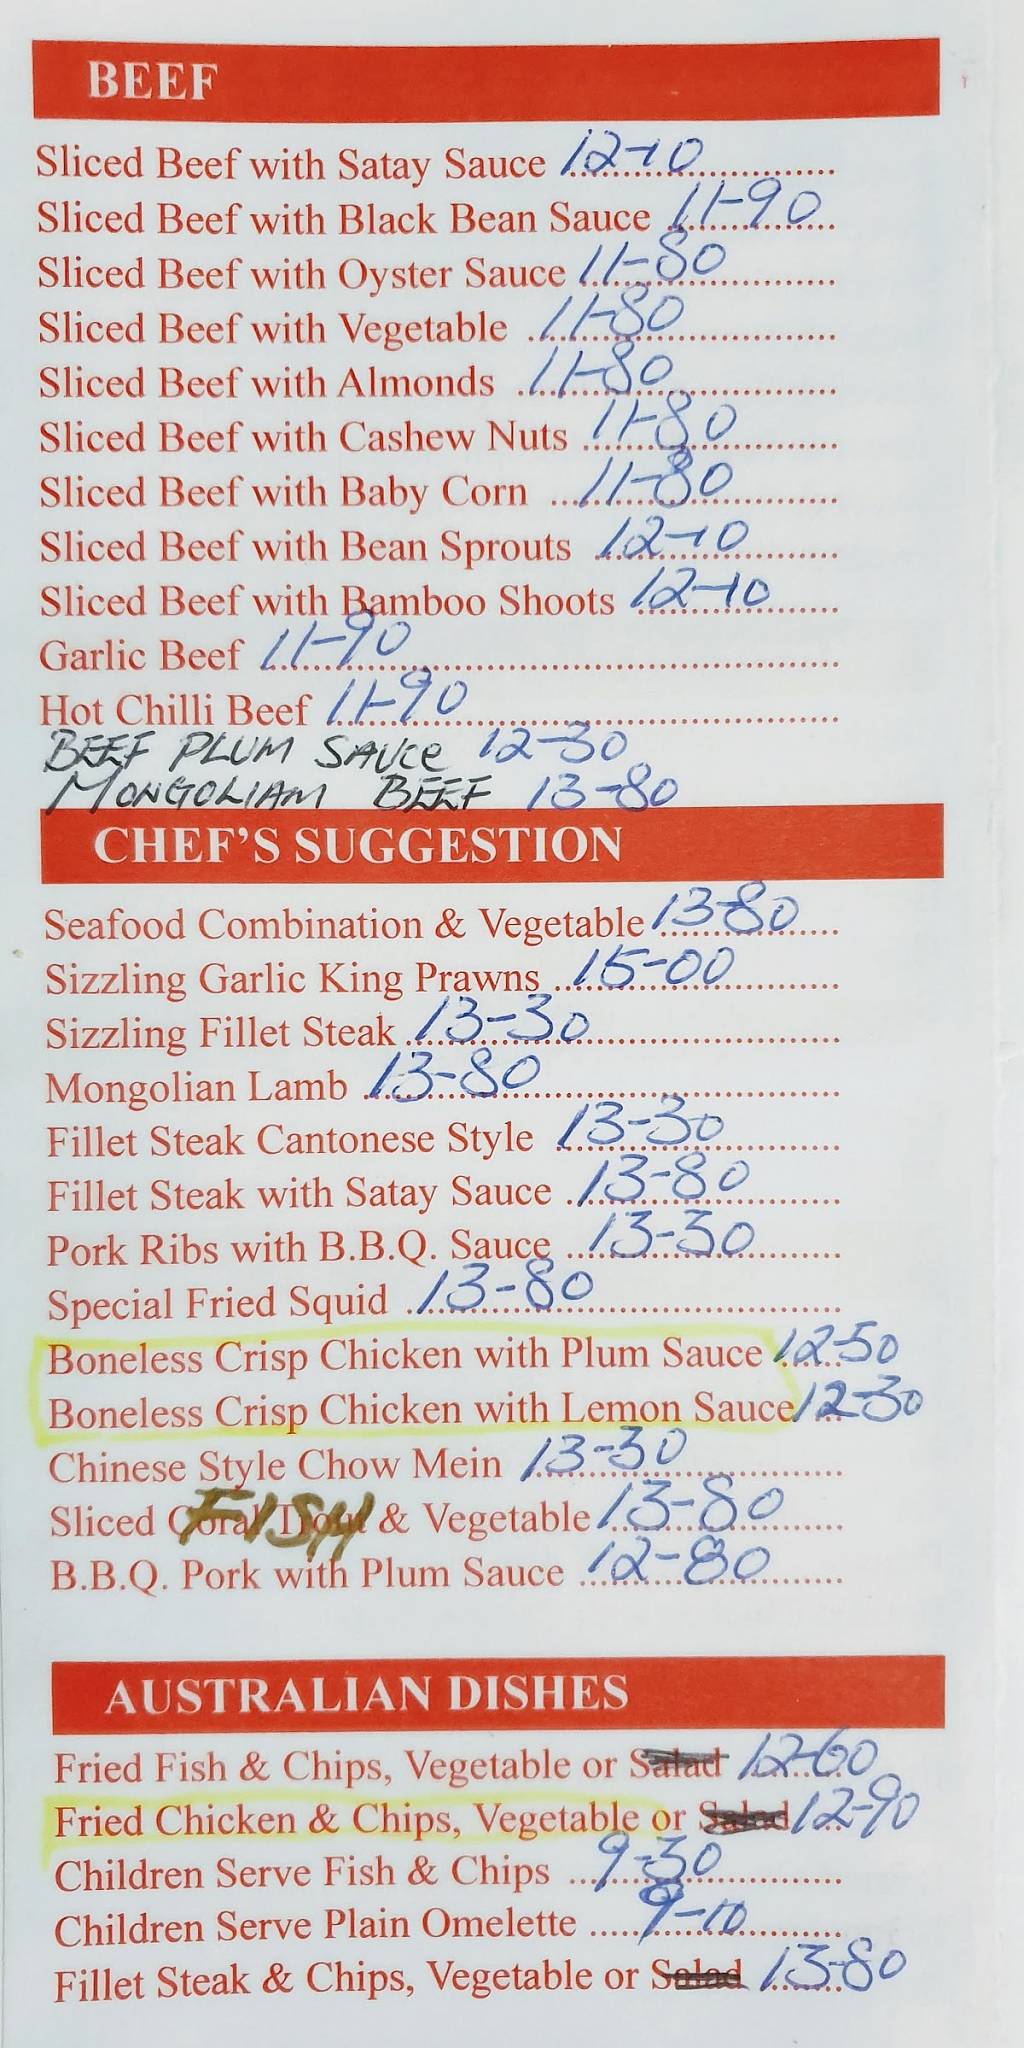 BEEF
Sliced Beef with Satay Sauce 12-10
Sliced Beef with Black Bean Sauce 11-90
Sliced Beef with Oyster Sauce 11-80
Sliced Beef with Vegetable 11-80
Sliced Beef with Almonds 11-80
Sliced Beef with Cashew Nuts 11-80
Sliced Beef with Baby Corn 11-80
Sliced Beef with Bean Sprouts 12-10
Sliced Beef with Bamboo Shoots 12-10
Garlic Beef 11-90
Hot Chilli Beef 11-90
BEEF PLUM SAUCE 12-30
MONGOLIAM BEEF 13-80
CHEF'S SUGGESTION
Seafood Combination & Vegetable 13-80
Sizzling Garlic King Prawns 15-00
Sizzling Fillet Steak 13-30
Mongolian Lamb 13-80
Fillet Steak Cantonese Style 13-30
Fillet Steak with Satay Sauce 13-80
Pork Ribs with B.B.Q. Sauce 13-30
Special Fried Squid 13-80
Boneless Crisp Chicken with Plum Sauce 12-50
Boneless Crisp Chicken with Lemon Sauce 12-30
Chinese Style Chow Mein 13-30
Sliced FISH & Vegetable 13-80
B.B.Q. Pork with Plum Sauce 12-80
AUSTRALIAN DISHES
Fried Fish & Chips, Vegetable or Salad 12-60
Fried Chicken & Chips, Vegetable or Salad 12-90
Children Serve Fish & Chips 9-30
Children Serve Plain Omelette 9-10
Fillet Steak & Chips, Vegetable or Salad 13-80